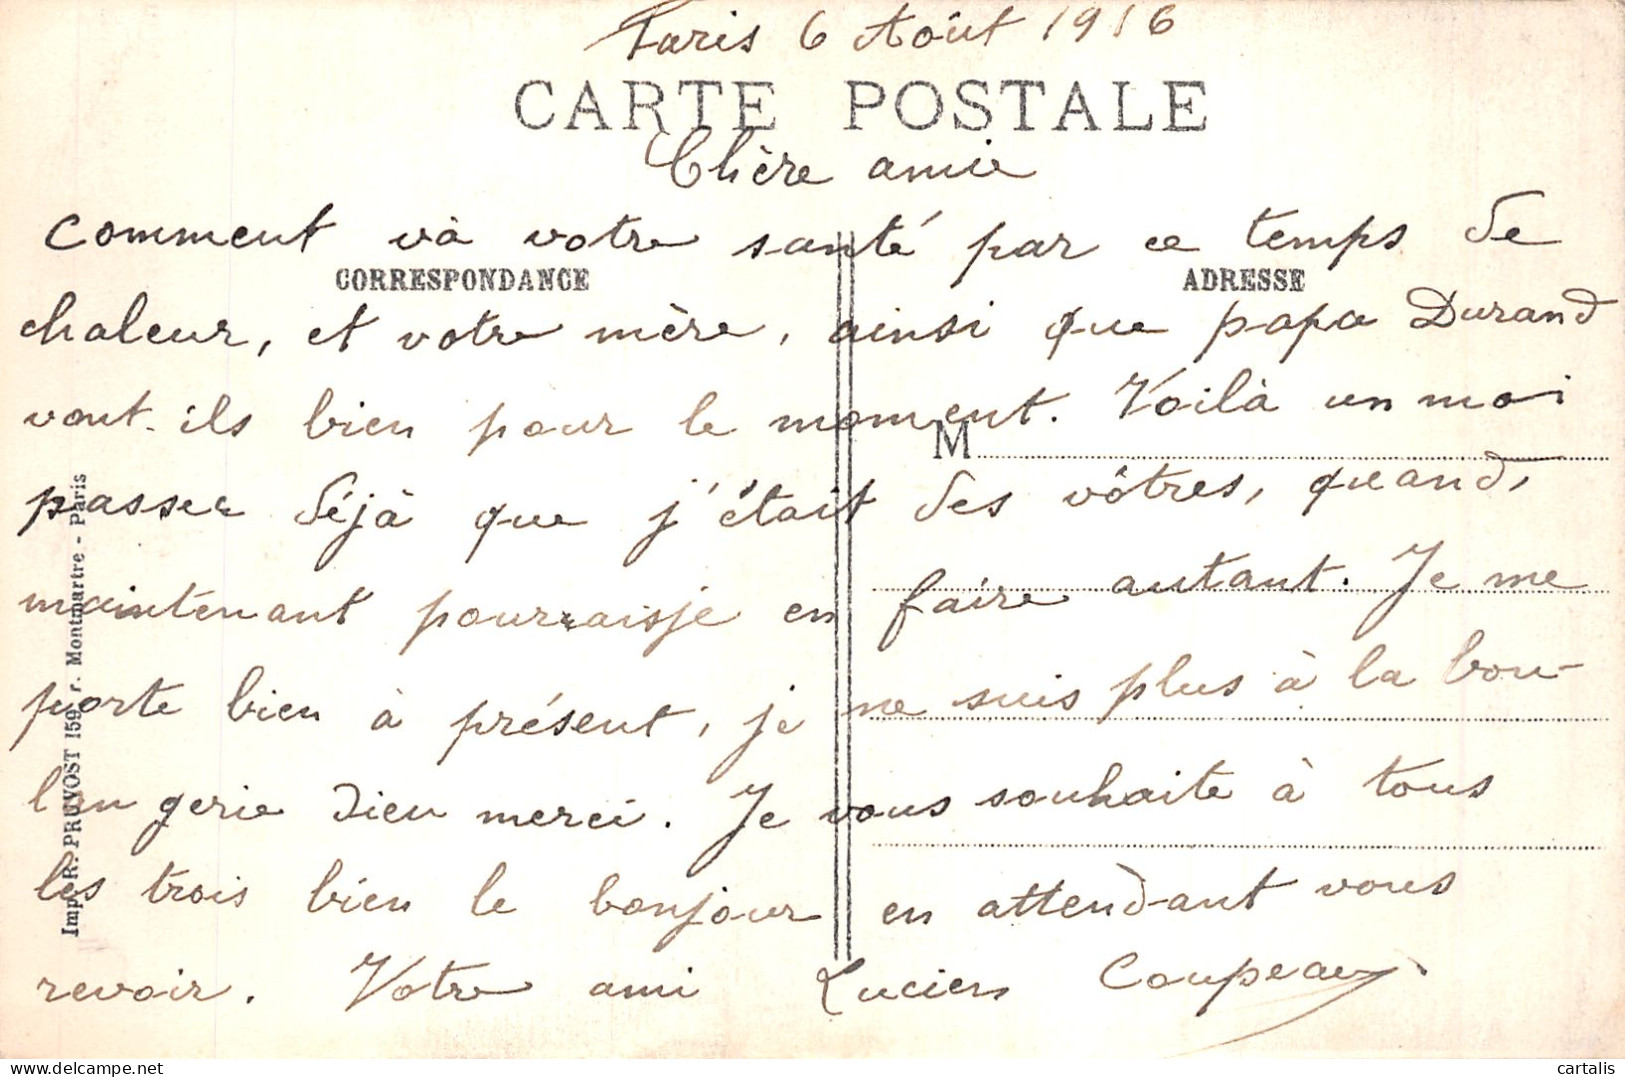 Paris 6 Août 1916
CARTE POSTALE
Chère amie
comment và votre santé par ce temps de
CORRESPONDANCE
ADRESSE
chaleur, et votre mère, ainsi que papa Durand
vont-ils bien pour le moment. Voilà un moi
M
passer déjà que j'était des vôtres, quand,
maintenant pourraisje en faire autant. Je me
porte bien à présent, je ne suis plus à la bou-
langerie dieu merci. Je vous souhaite à tous
les trois bien le bonjour en attendant vous
revoir. Votre ami Lucien Coupeau
Imp. R. PRUVOST 159, r. Montmartre - Paris
cartalis